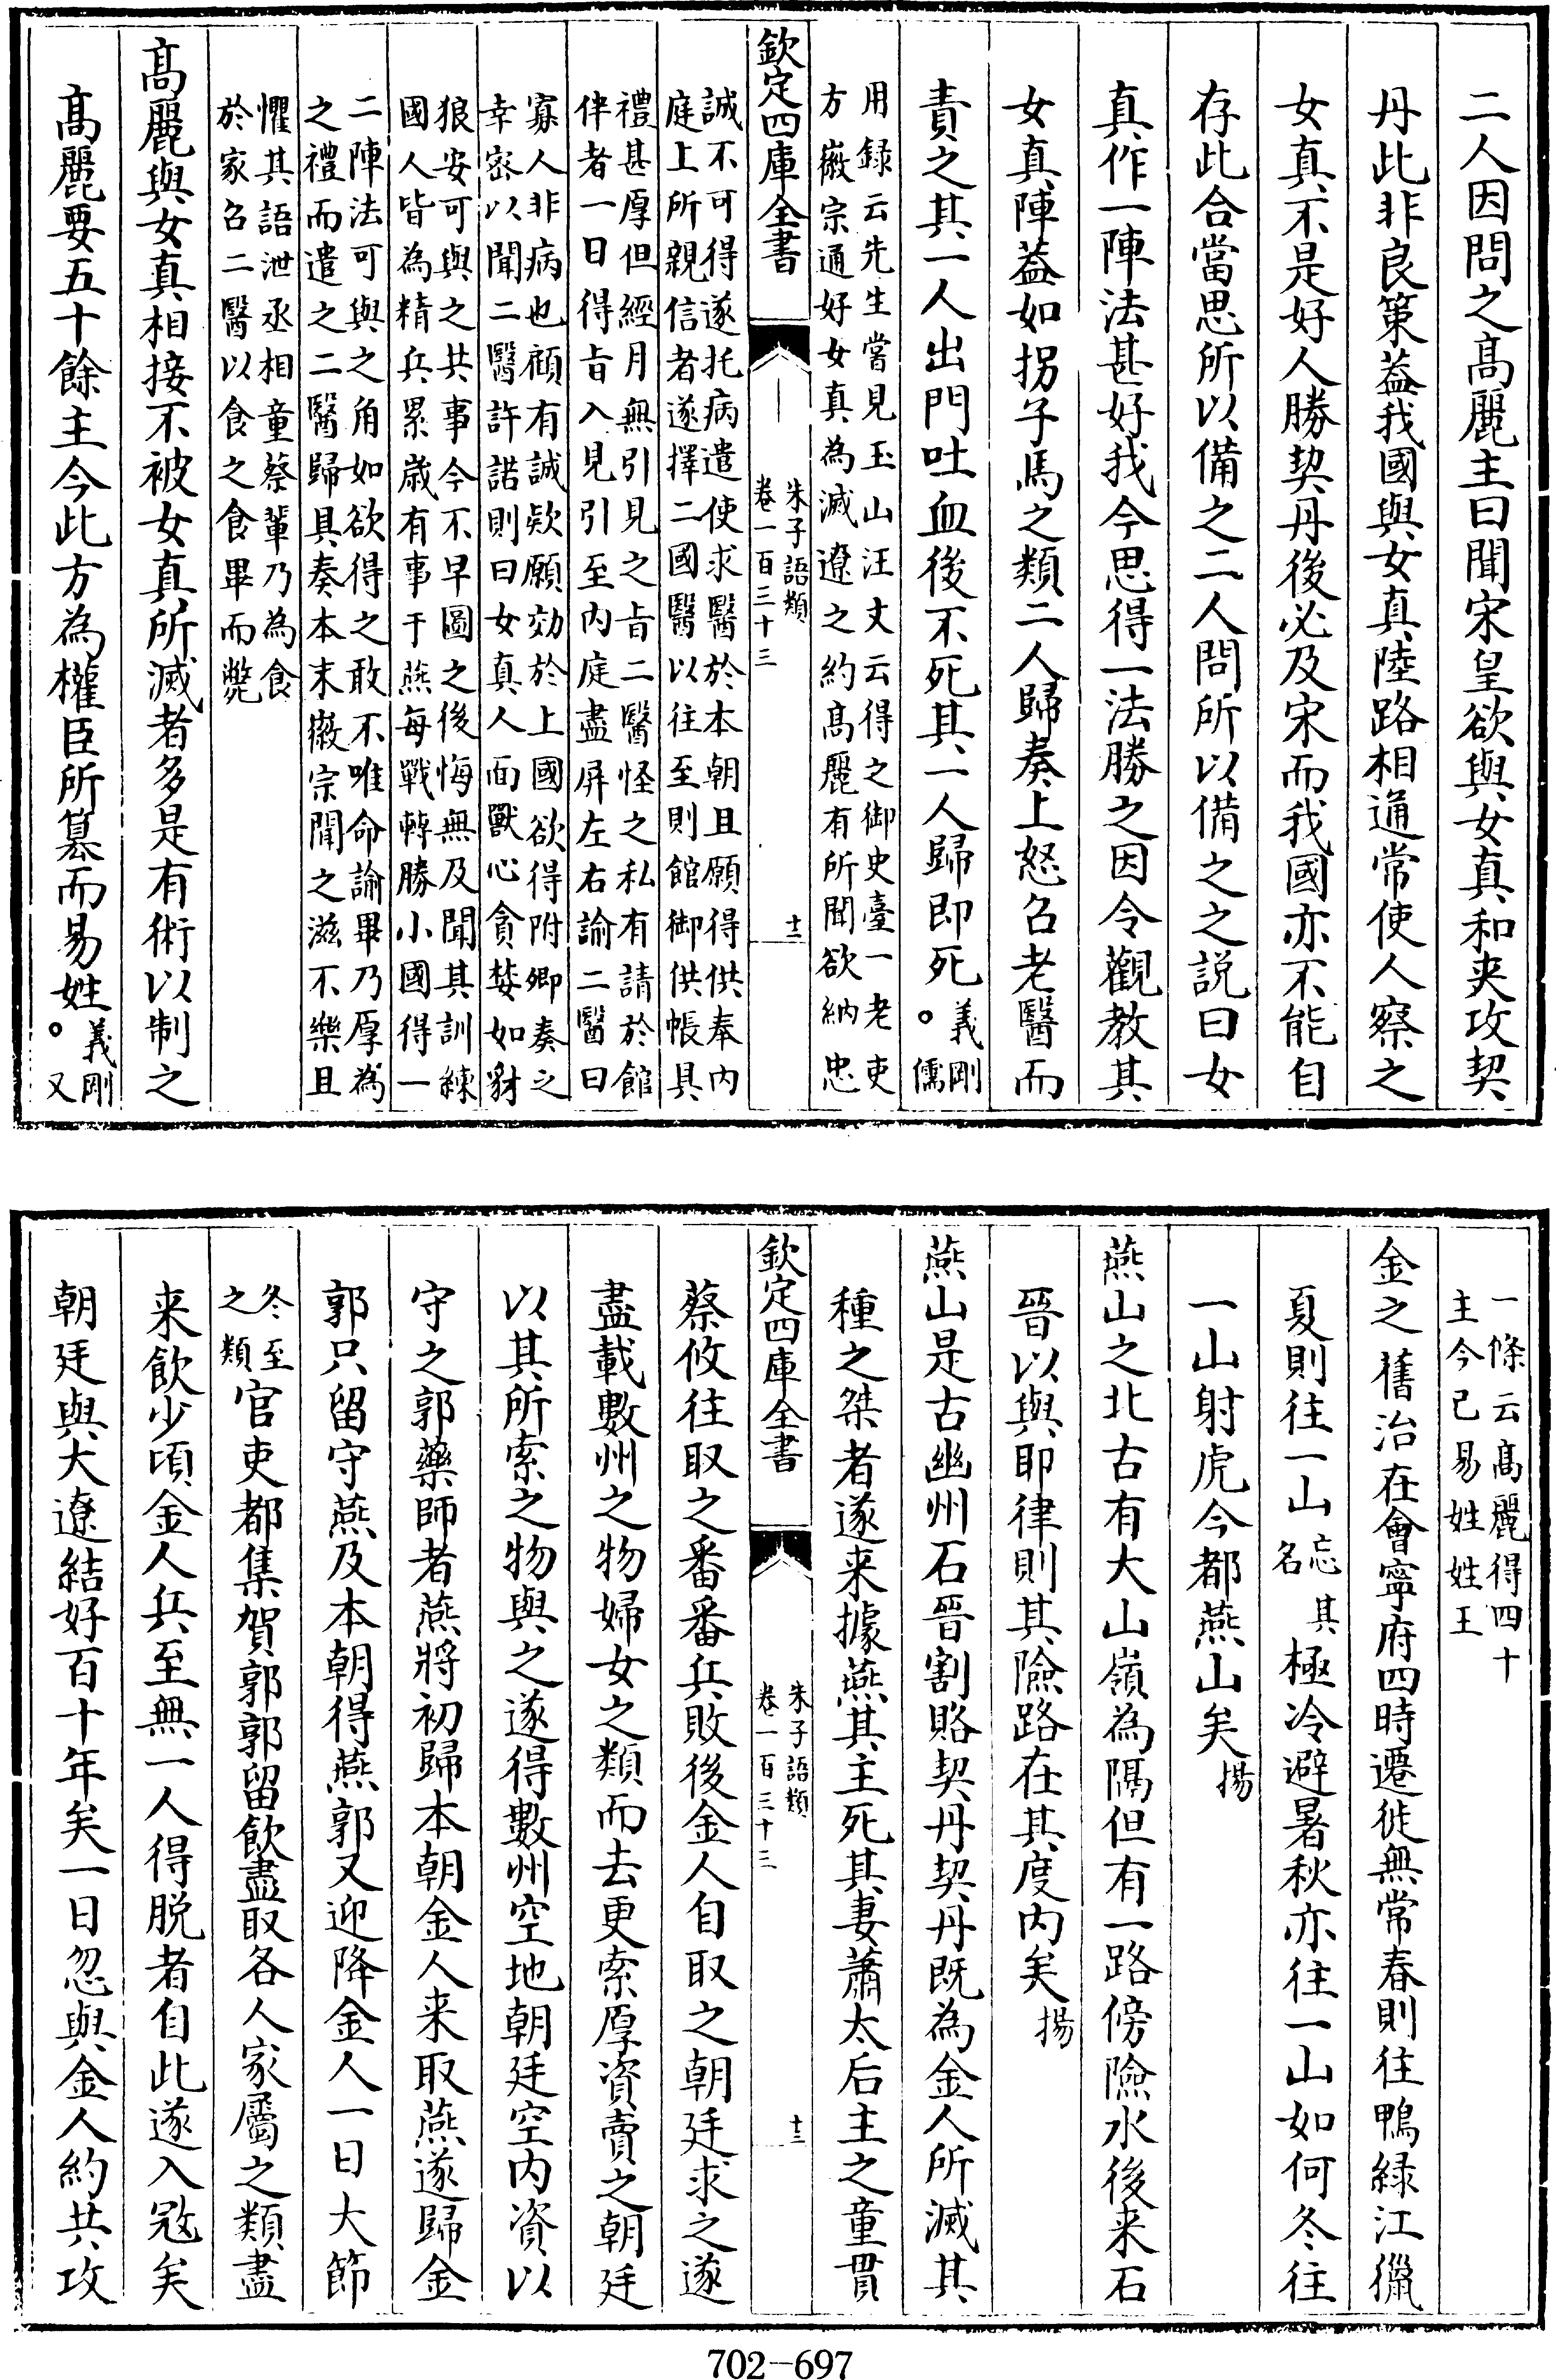 二人因問之髙麗主曰聞宋皇欲與女真和夹攻契
丹此非良策葢我國與女真陸路相通常使人察之
女真不是好人勝契丹後必及宋而我國亦不能自
存此合當思所以備之二人問所以備之之説曰女
真作一陣法甚好我今思得一法勝之因令觀教其
女真陣葢如拐子馬之類二人歸奏上怒召老醫而
責之其一人出門吐血後不死其一人歸即死義剛。儒
用録云先生嘗見玉山汪丈云得之御史臺一老吏
方徽宗通好女真為滅遼之約髙麗有所聞欲納忠
欽定四庫全書
朱子語類
卷一百三十三
十二
誠不可得遂托病遣使求醫於本朝且願得供奉内
庭上所親信者遂擇二國醫以往至則館御供帳具
禮甚厚但經月無引見之㫖二醫怪之私有請於館
伴者一日得㫖入見引至内庭盡屏左右諭二醫曰
寡人非病也顧有誠欵願効於上國欲得附卿奏之
幸宻以聞二醫許諾則曰女真人面獸心貪婪如豺
狼安可與之共事今不早圖之後悔無及聞其訓練
國人皆為精兵累歳有事于燕每戰轉勝小國得一
二陣法可與之角如欲得之敢不唯命諭畢乃厚為
之禮而遣之二醫歸具奏本末徽宗聞之滋不樂且
懼其語泄丞相童蔡輩乃為食
於家召二醫以食之食畢而斃
髙麗與女真相接不被女真所滅者多是有術以制之
髙麗要五十餘主今此方為權臣所篡而易姓義剛。又
一條云髙麗得四十
主今已易姓姓王
金之舊治在會寧府四時遷徙無常春則往鴨緑江獵
夏則往一山忘其名極冷避暑秋亦往一山如何冬往
一山射虎今都燕山矣揚
燕山之北古有大山嶺為隔但有一路傍險水後来石
晉以與耶律則其險路在其度内矣揚
燕山是古幽州石晉割賂契丹契丹既為金人所滅其
種之桀者遂来據燕其主死其妻蕭太后主之童貫
欽定四庫全書
朱子語類
卷一百三十三
十三
蔡攸往取之番番兵敗後金人自取之朝廷求之遂
盡載數州之物婦女之類而去更索厚資賣之朝廷
以其所索之物與之遂得數州空地朝廷空内資以
守之郭藥師者燕將初歸本朝金人来取燕遂歸金
郭只留守燕及本朝得燕郭又迎降金人一日大節
冬至之類官吏都集賀郭郭留飲盡取各人家屬之類盡
来飲少頃金人兵至無一人得脱者自此遂入冦矣
朝廷與大遼結好百十年矣一日忽與金人約共攻
702-697